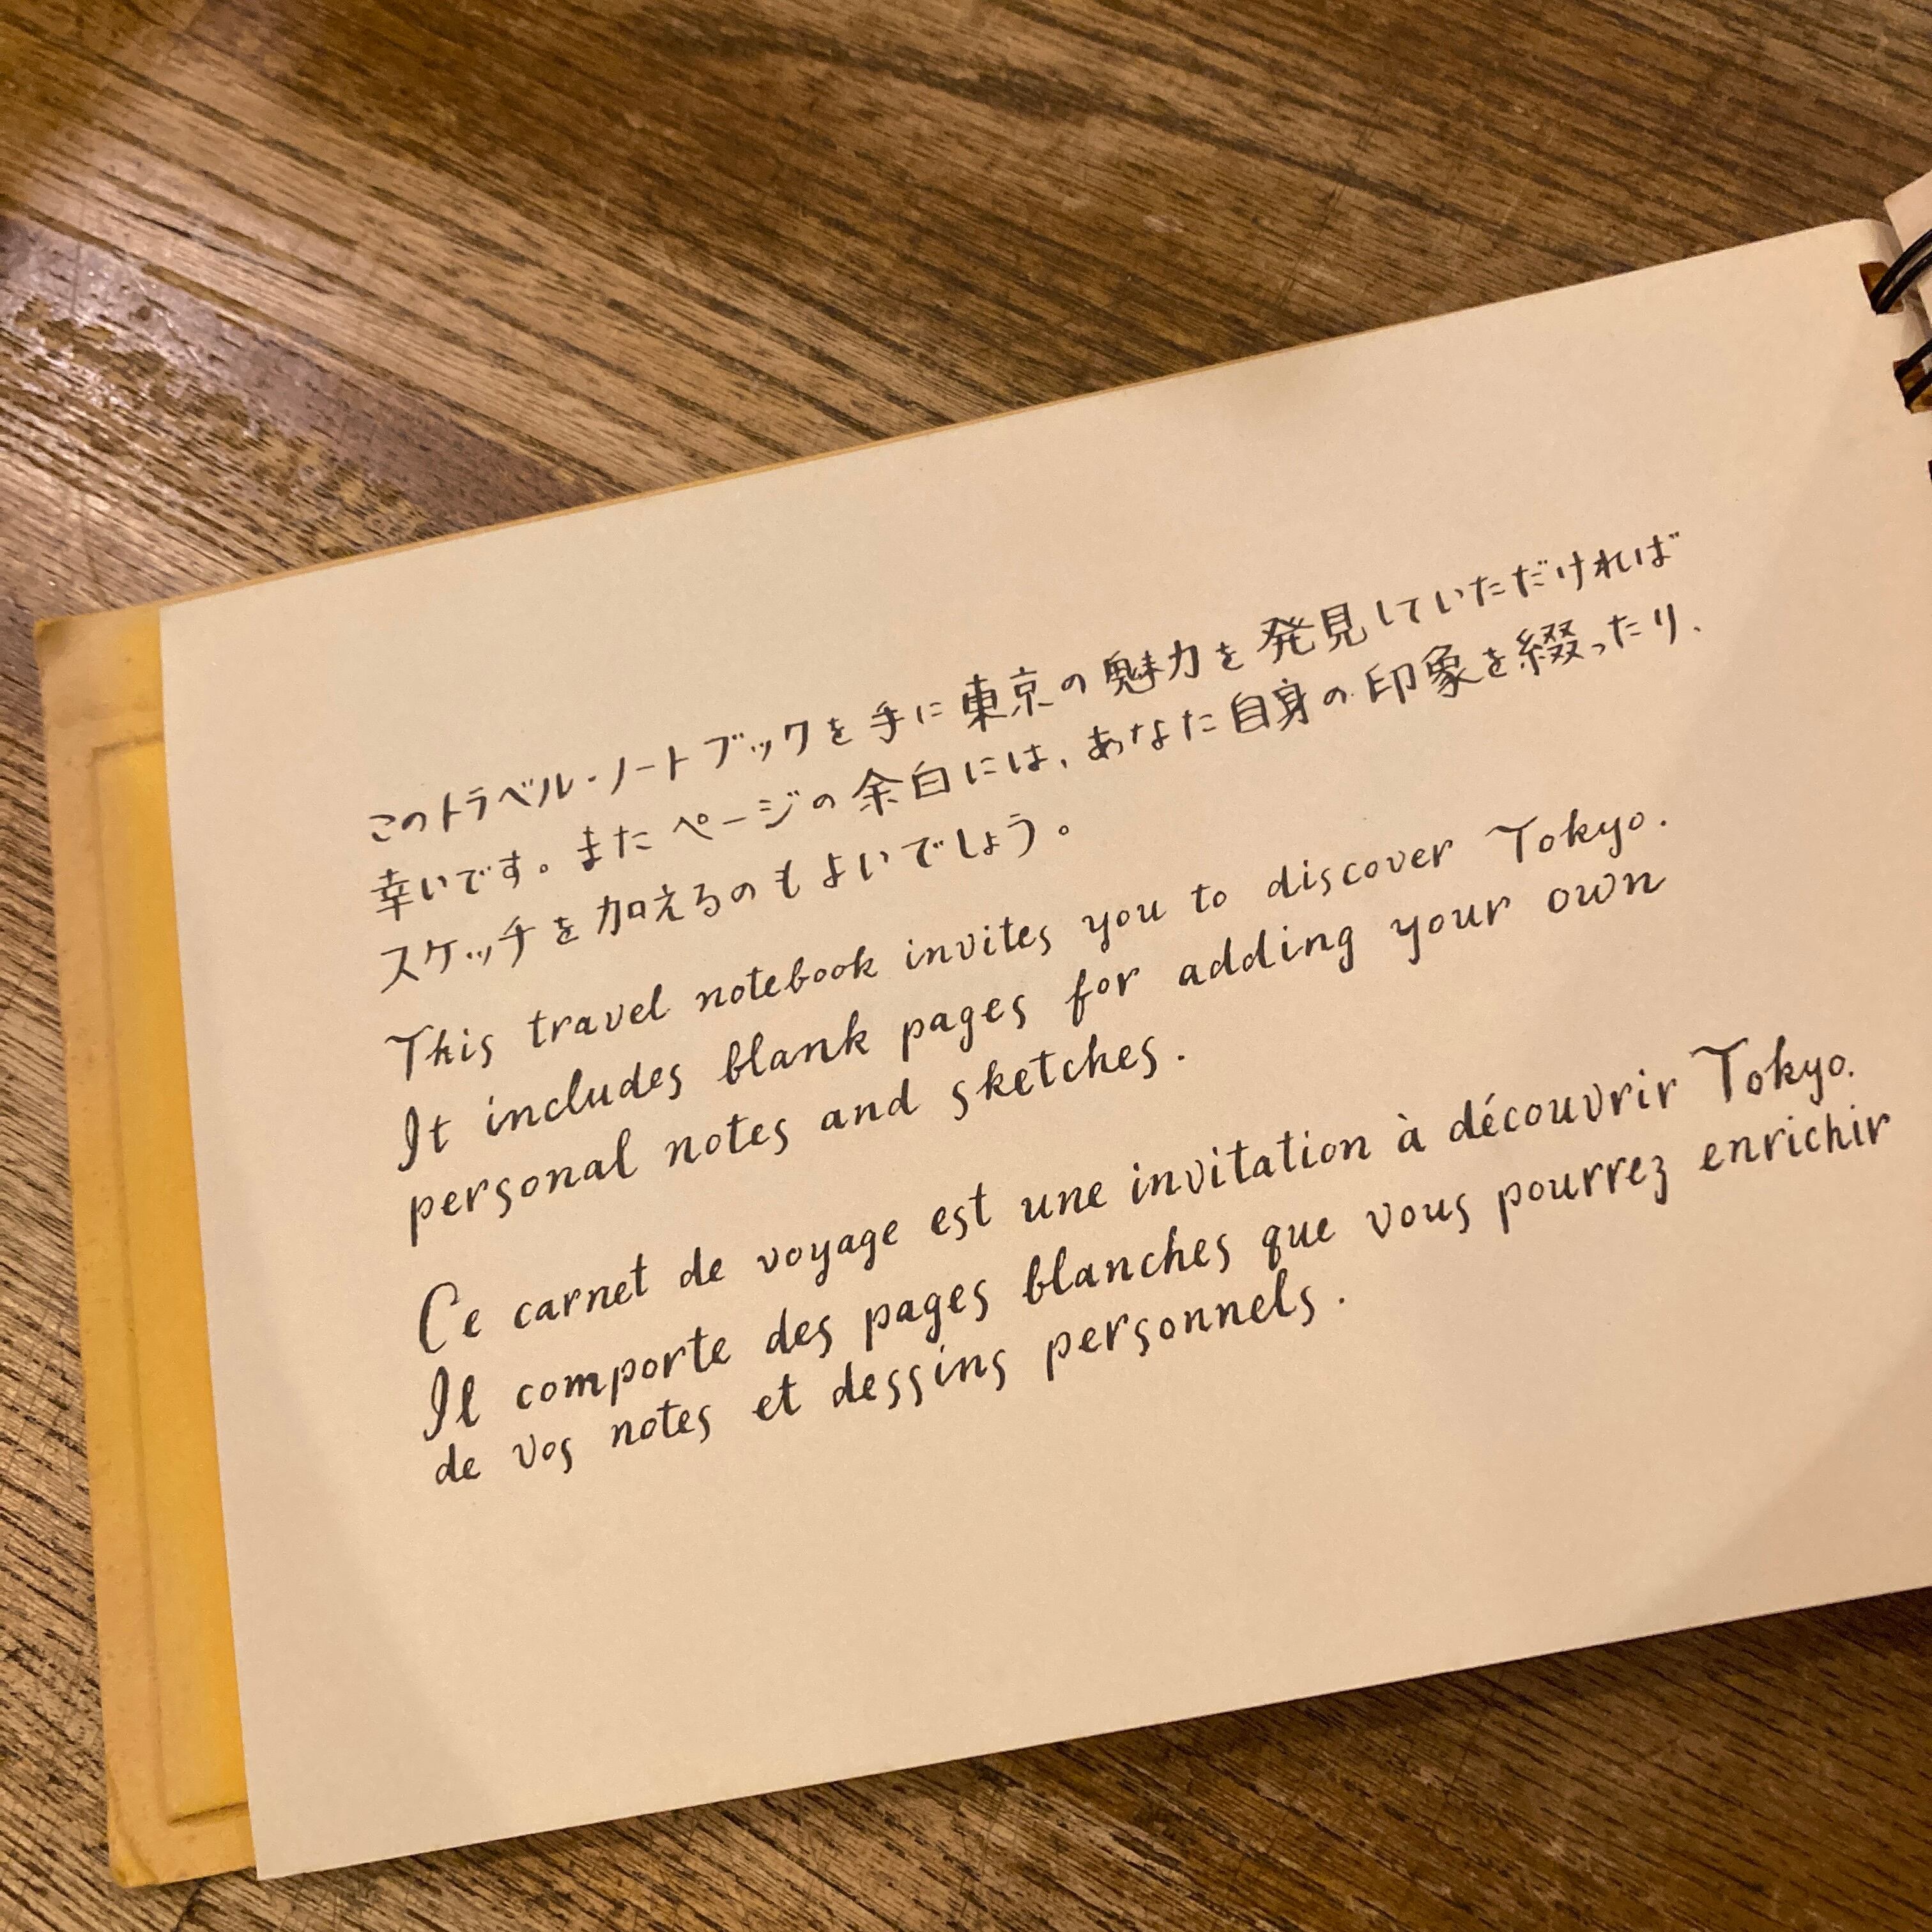 このトラベル・ノートブックを手に東京の魅力を発見していただければ
幸いです。またページの余白には、あなた自身の印象を綴ったり、
スケッチを加えるのもよいでしょう。
This travel notebook invites you to discover Tokyo.
It includes blank pages for adding your own
personal notes and sketches.
Ce carnet de voyage est une invitation à découvrir Tokyo.
Il comporte des pages blanches que vous pourrez enrichir
de vos notes et dessins personnels.